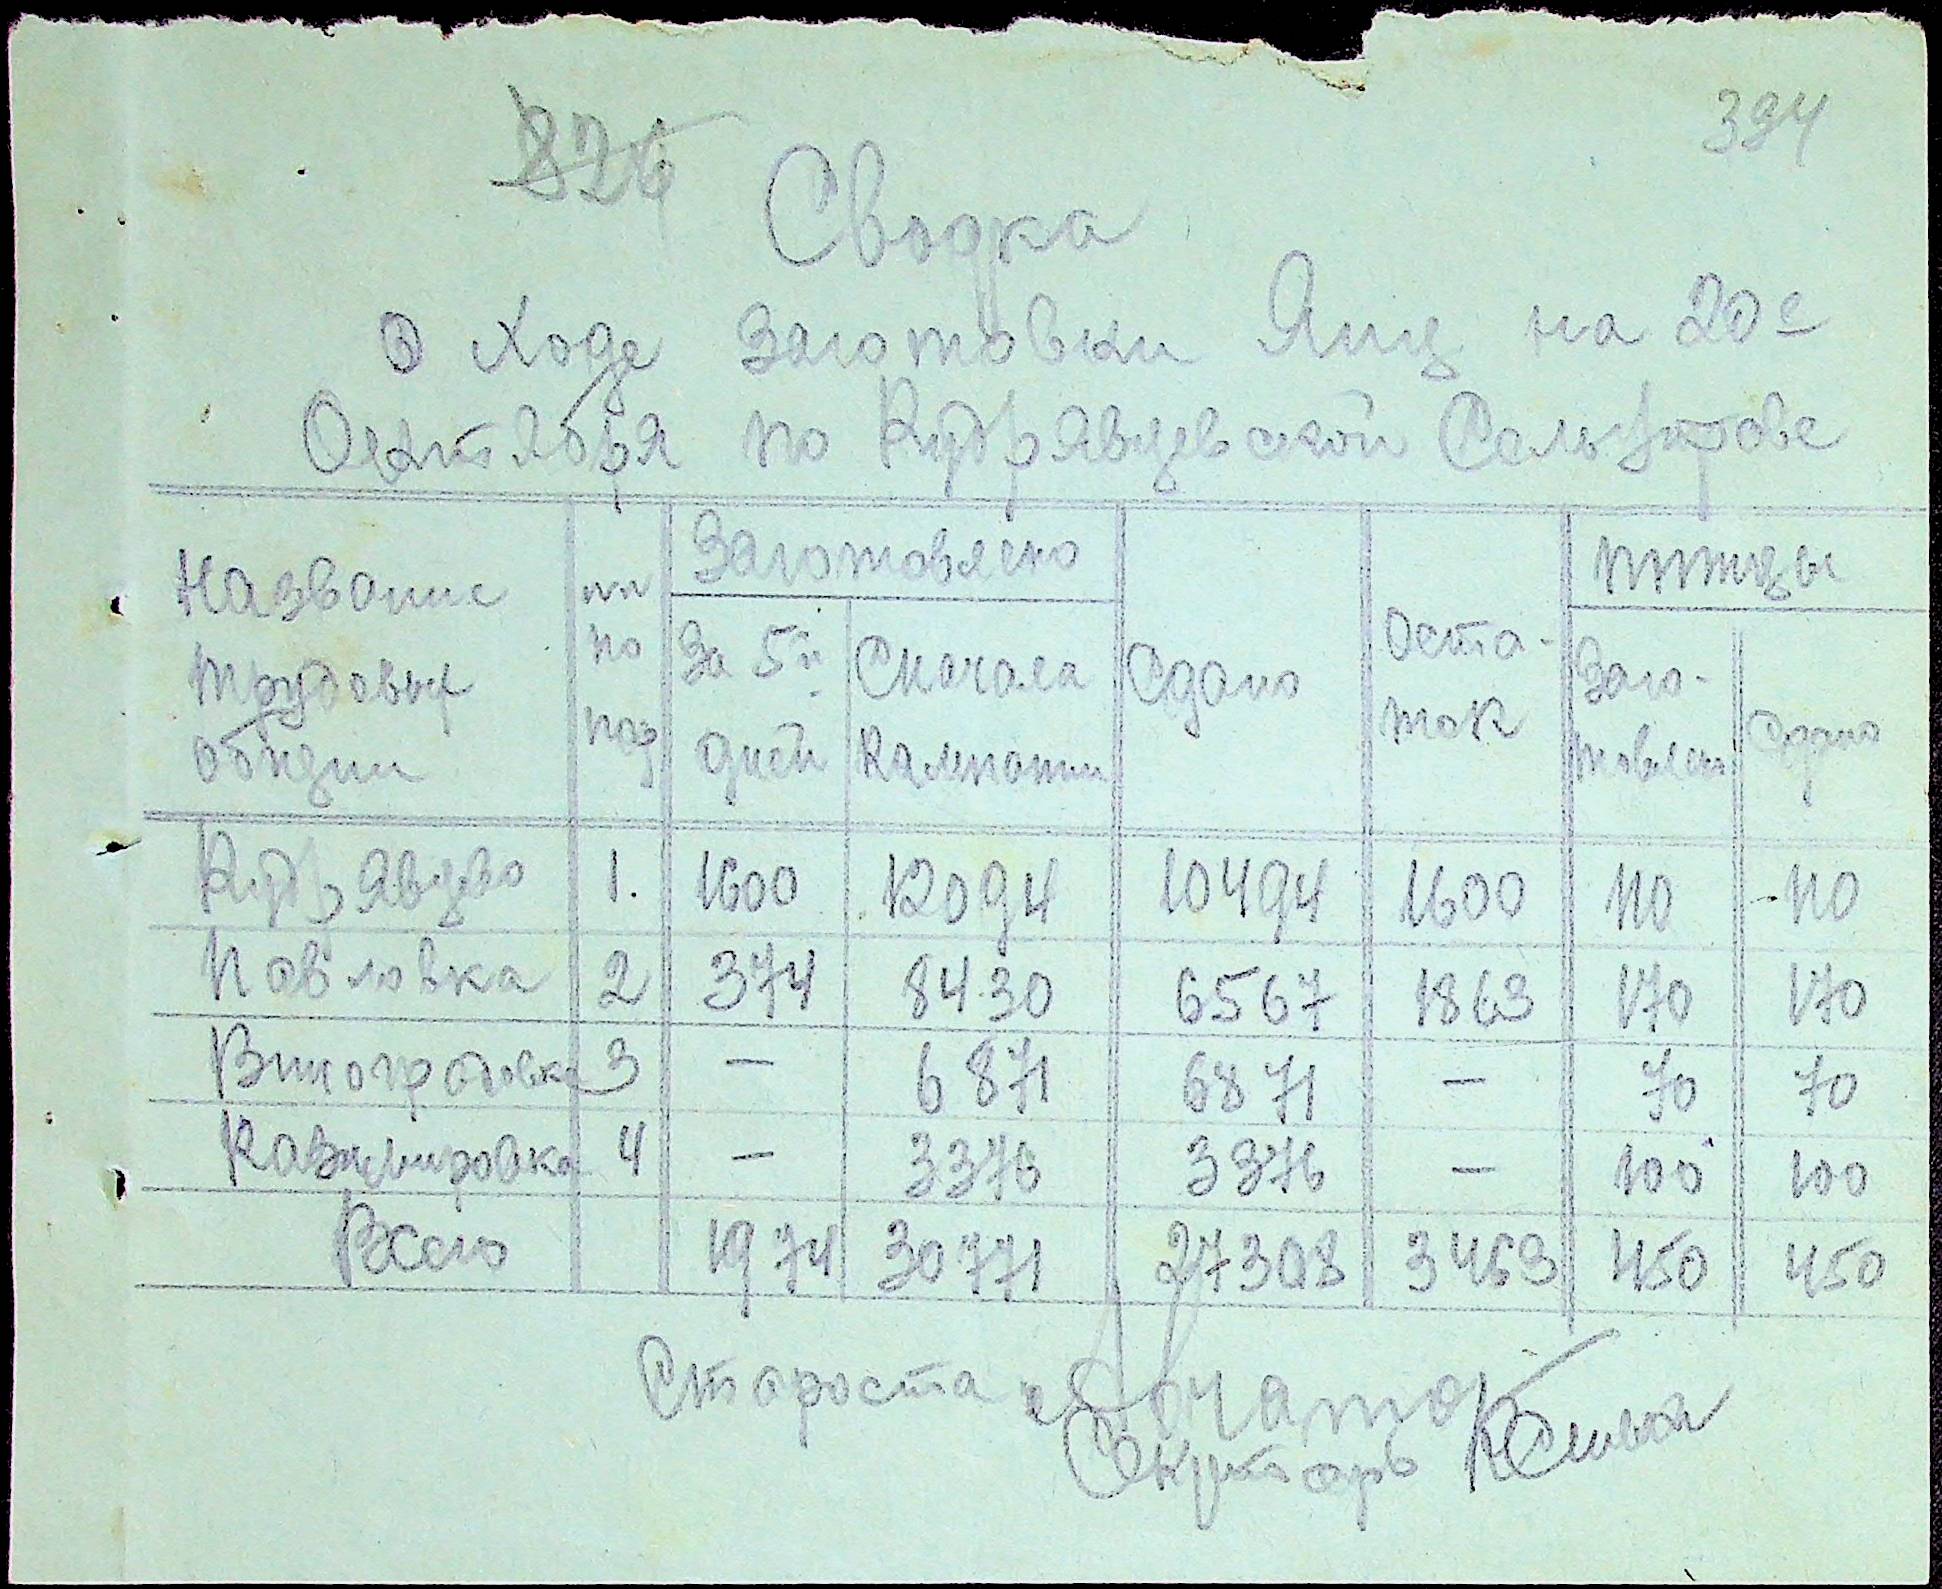 826
394
Сводка
О Ходе Заготовки Яиц на 20е
Октября по Кудрявцевской Сельуправе
Название трудовых общин | пп по пор | Заготовлено | Сдано | Остаток | птицы
За 5й дней | Сначала Кампании | Заготовлено | Сдано
Кудрявцево | 1. | 1600 | 12094 | 10494 | 1600 | 110 | 110
Повловка | 2 | 374 | 8430 | 6567 | 1863 | 170 | 170
Виноградовка | 3 | — | 6871 | 6871 | — | 70 | 70
Казимировка | 4 | — | 3376 | 3376 | — | 100 | 100
Всего | 1974 | 30771 | 27308 | 3463 | 450 | 450
Староста
Секретарь